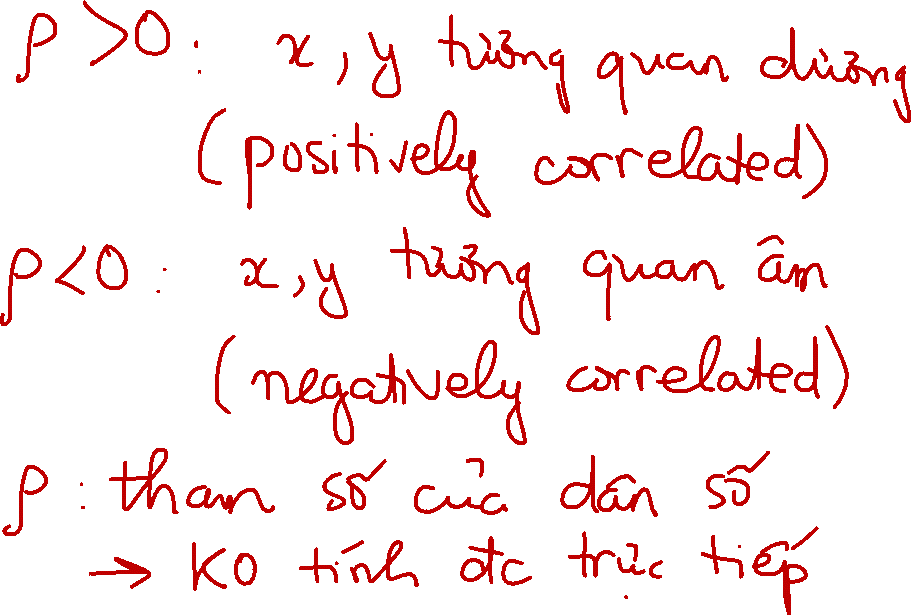 ρ > 0 : x, y tương quan dương
(positively correlated)
ρ < 0 : x, y tương quan âm
(negatively correlated)
ρ : tham số của dân số
→ KO tính đc trực tiếp